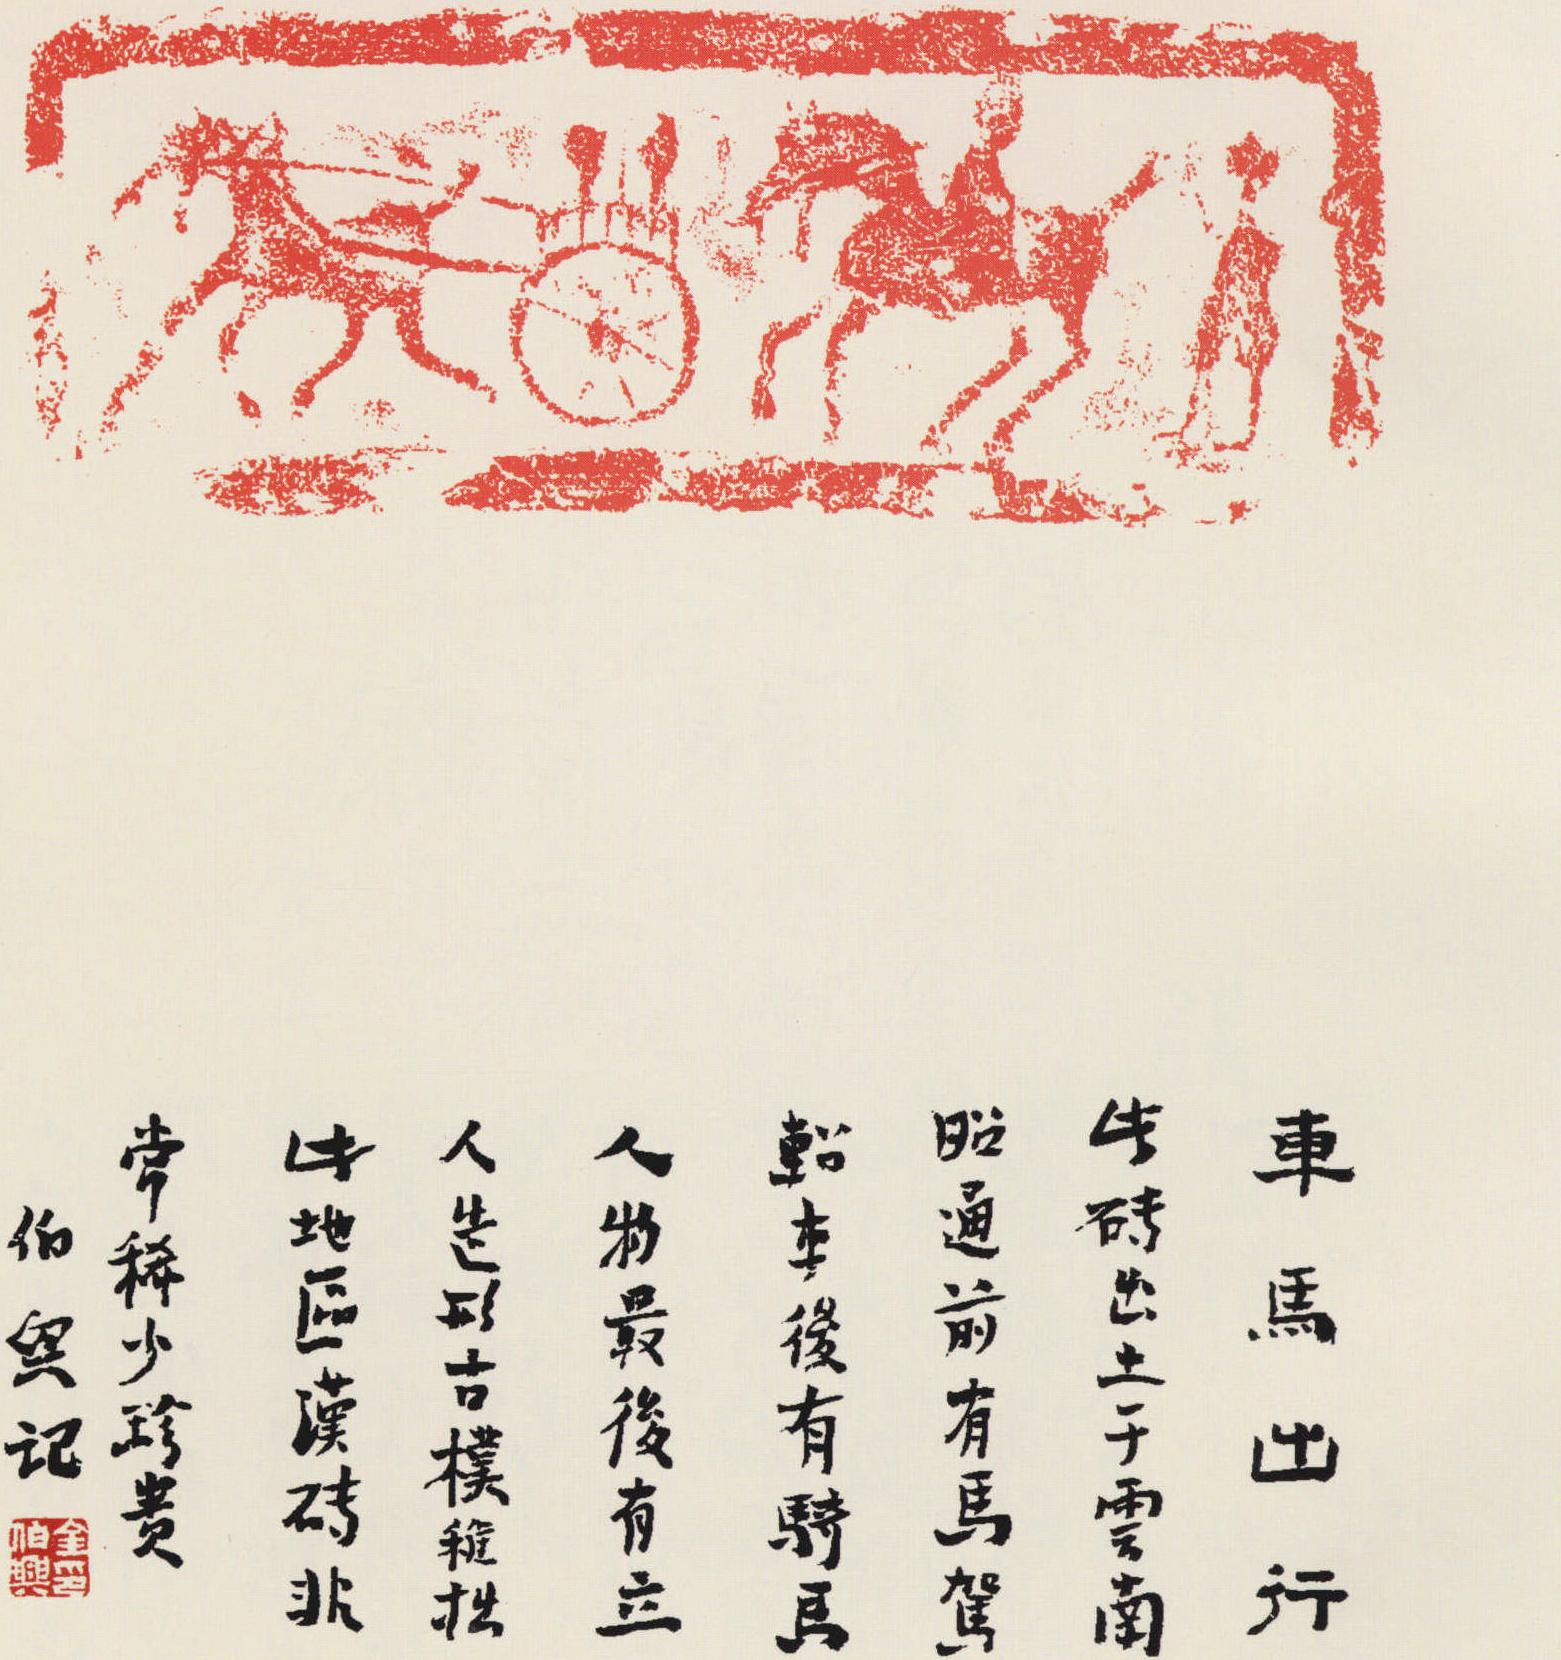 車馬出行
此磚出土于雲南
昭通前有馬駕
軺車後有騎馬
人物最後有立
人造形古樸稚拙
此地區漢磚非
常稀少珍貴
伯興記
金印
伯興